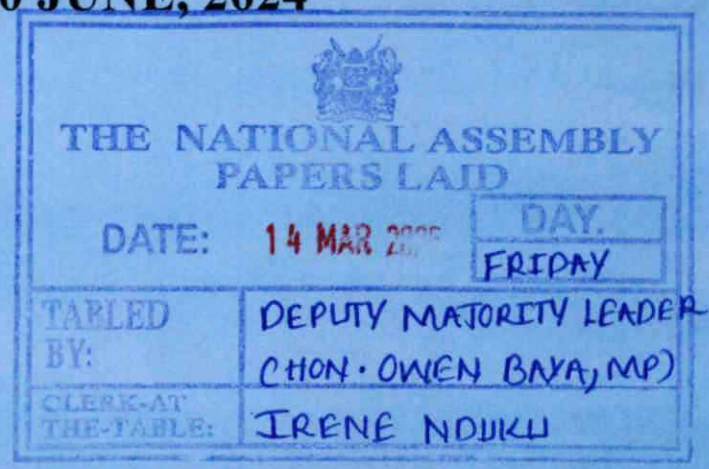 JUNE, 2024
THE NATIONAL ASSEMBLY
PAPERS LAID
DATE: 14 MAR
DAY.
FRIDAY
TABLED BY:
DEPUTY MAJORITY LEADER
(HON. OWEN BAYA, MP)
CLERK-AT THE-TABLE:
IRENE NDUKU